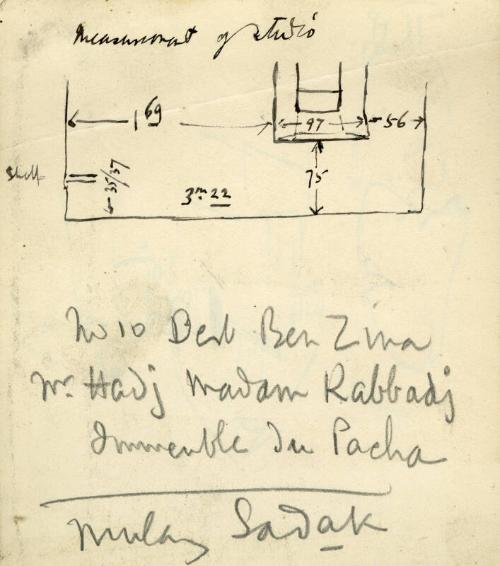 measurement of studio
1 69
97
56
shelf
35/37
75
3m 22
No 10 Derb Ben Zina
Mr Hadj Madam Rabbadj
Immeuble du Pacha
Mulay Sadak